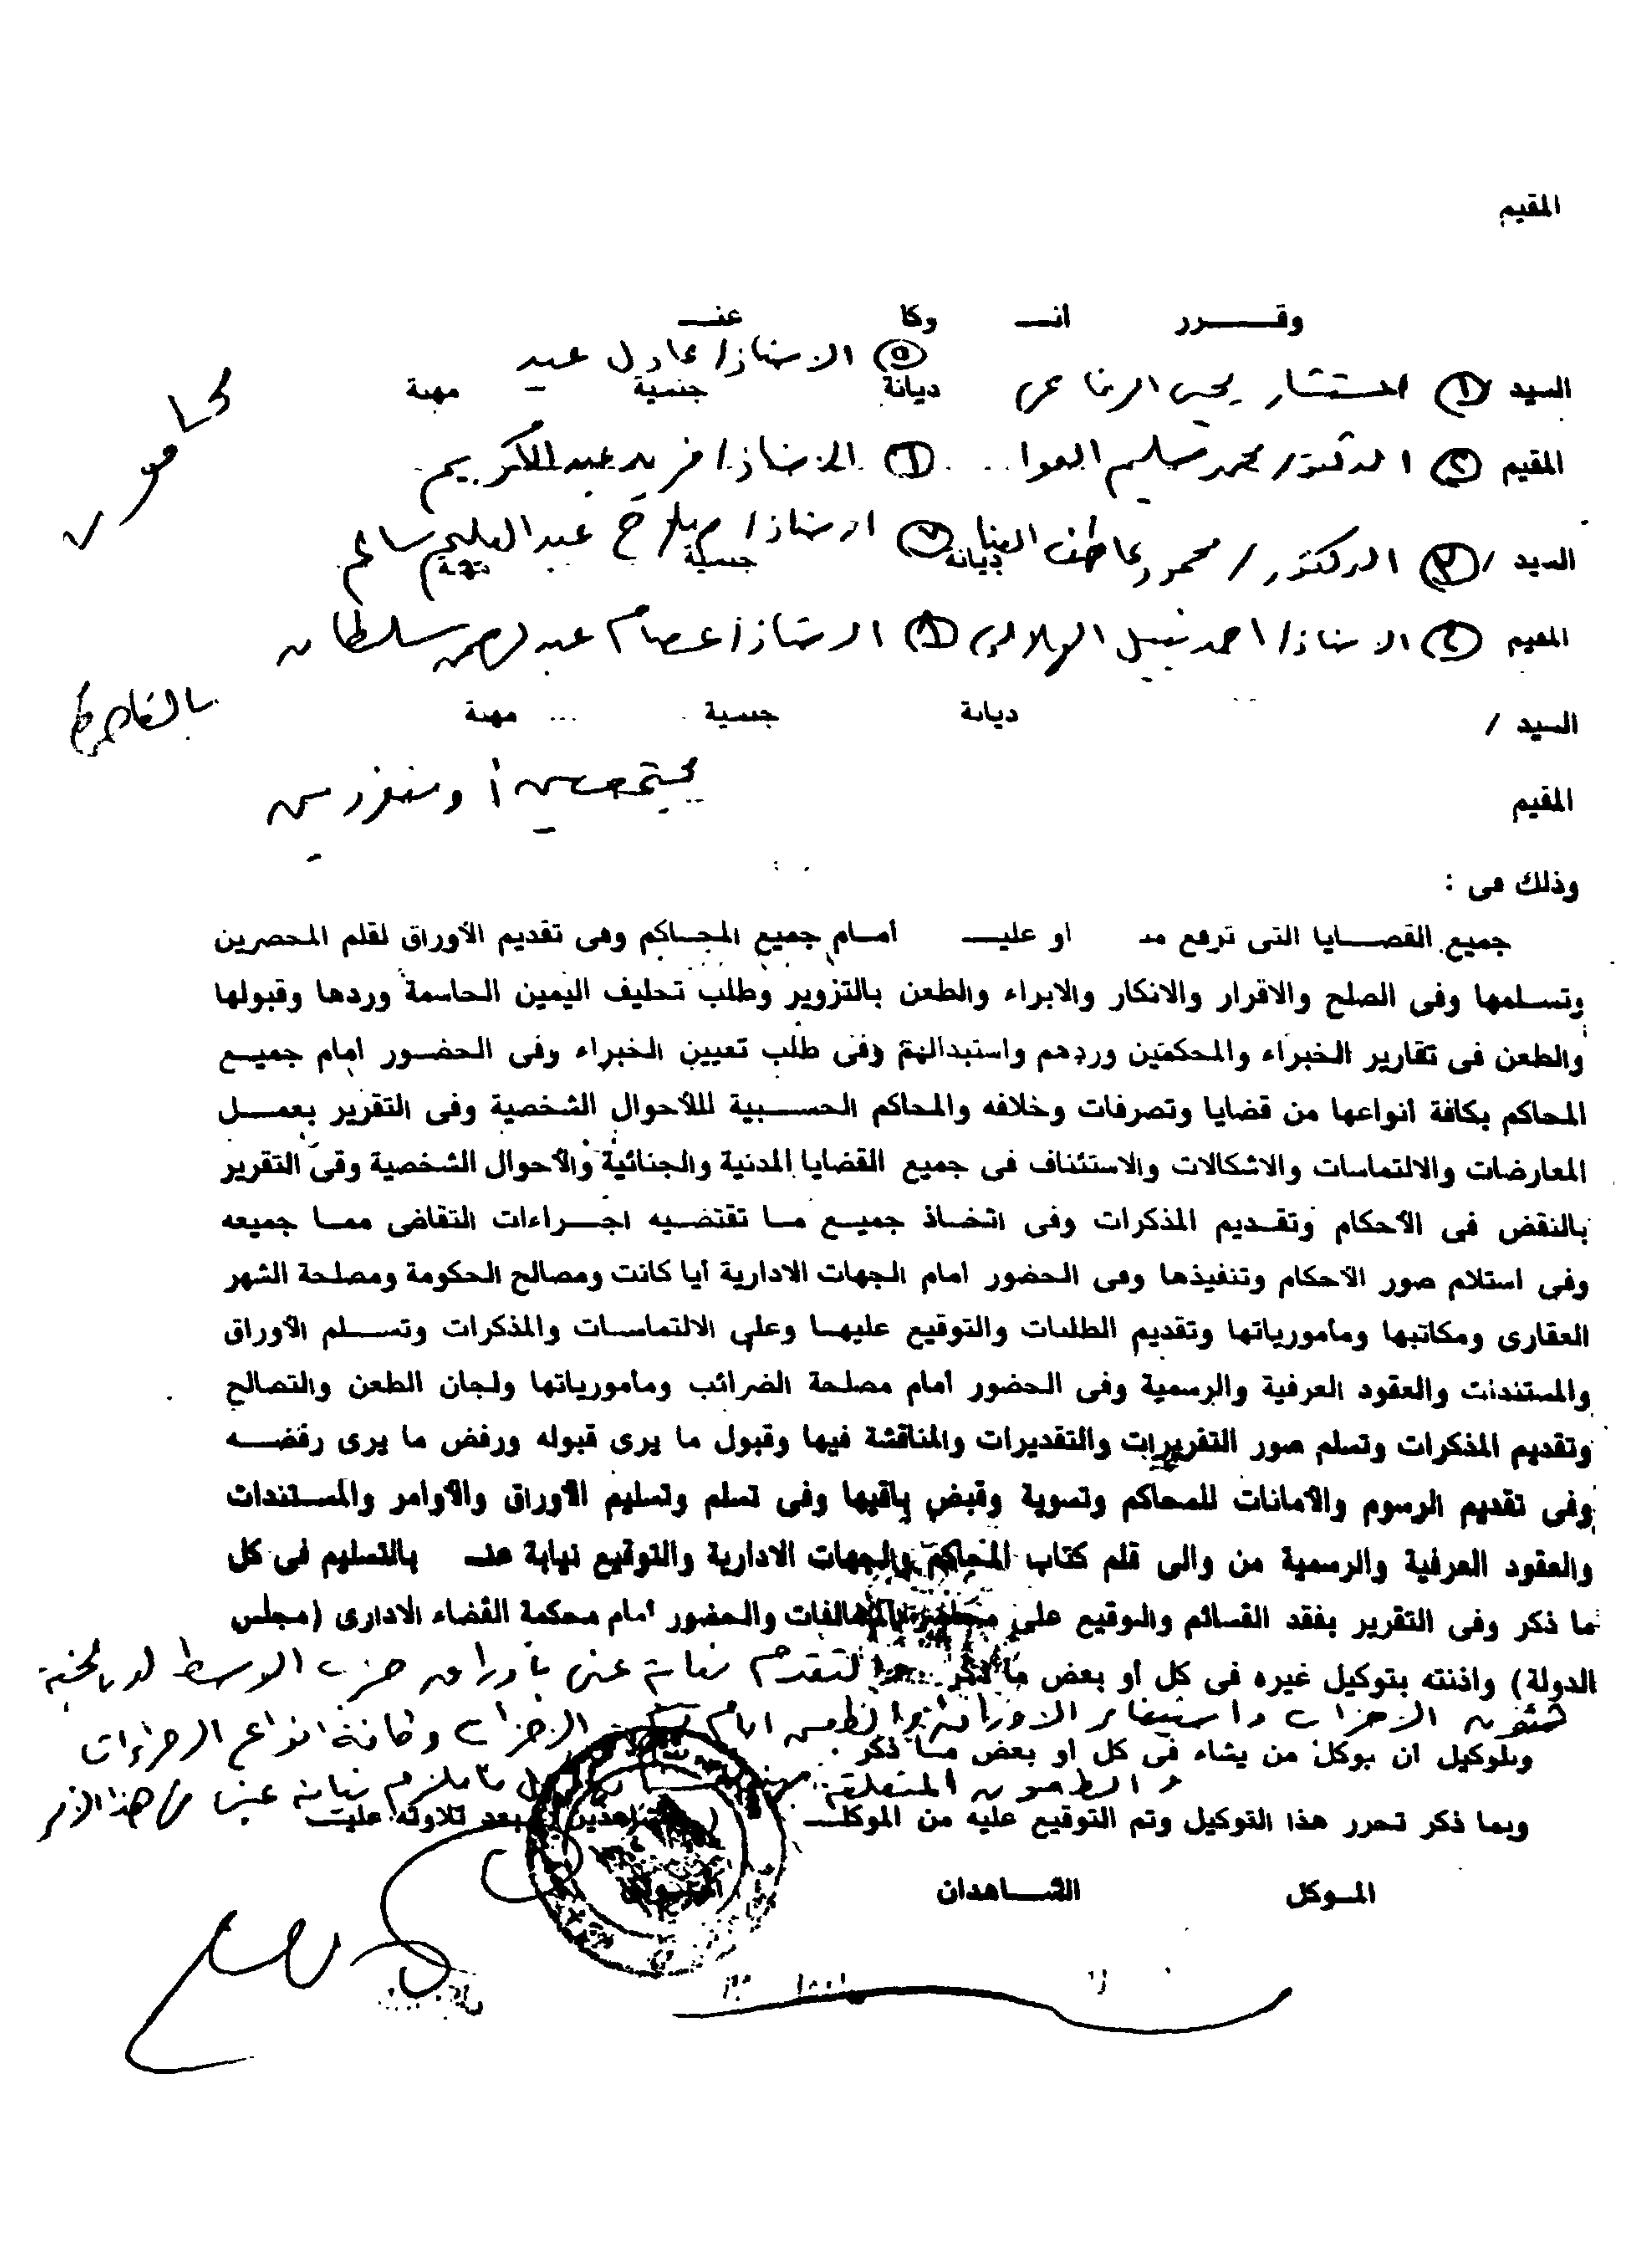 المقيم
وقـــــرر انــ وكا عنــ
⑤ الاستاذ/ عادل عيد
السيد / ① المستشار يحيى الرفاعى ديانة جنسية مهنة
المقيم ② الدكتور/ محمد سليم العوا ⑥ الاستاذ/ فريد عبد الكريم
محامون
السيد / ③ الدكتور / محمود عاطف البنا ديانة ⑦ الاستاذ/ صلاح عبد العليم سالم جنسية مهنة
المقيم ④ الاستاذ/ احمد نبيل الهلالى ⑧ الاستاذ/ عصام عبد الرحمن سلطان
السيد / ديانة جنسية مهنة
بالقاهرة
المقيم مجتمعين أو منفردين
وذلك فى :
جميع القضـــايا التى ترفع منـ او عليـــ أمــام جميع المحــاكم وفى تقديم الأوراق لقلم المحضرين
وتســلمها وفى الصلح والاقرار والانكار والابراء والطعن بالتزوير وطلب تحليف اليمين الحاسمة وردها وقبولها
والطعن فى تقارير الخبراء والمحكمين وردهم واستبدالهم وفى طلب تعيين الخبراء وفى الحضــور امام جميــع
المحاكم بكافة أنواعها من قضايا وتصرفات وخلافه والمحاكم الحســـبية لللأحوال الشخصية وفى التقرير بعمــــل
المعارضات والالتماسات والاشكالات والاستئناف فى جميع القضايا المدنية والجنائية والأحوال الشخصية وفى التقرير
بالنقض فى الأحكام وتقــديم المذكرات وفى اتخــاذ جميــع مــا تقتضــيه اجــــراءات التقاضى ممــا جميعه
وفى استلام صور الأحكام وتنفيذها وفى الحضور امام الجهات الادارية أيا كانت ومصالح الحكومة ومصلحة الشهر
العقارى ومكاتبها ومأمورياتها وتقديم الطلبات والتوقيع عليهــا وعلى الالتماســات والمذكرات وتســــلم الأوراق
والمستندات والعقود العرفية والرسمية وفى الحضور أمام مصلحة الضرائب ومأمورياتها ولجان الطعن والتصالح
وتقديم المذكرات وتسلم صور التقريرات والتقديرات والمناقشة فيها وقبول ما يرى قبوله ورفض ما يرى رفضــــه
وفى تقديم الرسوم والأمانات للمحاكم وتسوية وقبض باقيها وفى تسلم وتسليم الأوراق والأوامر والمســتندات
والعقود العرفية والرسمية من والى قلم كتاب المحاكم والجهات الادارية والتوقيع نيابة عنــ بالتسليم فى كل
ما ذكر وفى التقرير بفقد القسائم والتوقيع على محاضر المخالفات والحضور أمام محكمة القضاء الادارى (مجلس
الدولة) واذنته بتوكيل غيره فى كل أو بعض ما ذكر التقدم نيابة عنى بأوراق حزب الوسط لدى لجنة
شئون الاحزاب واستيفاء الاوراق والطعن امام الاحزاب وكافة انواع الاجراءات
وللوكيل ان يوكل من يشاء فى كل او بعض مــا ذكر
والطعون المتعلقة ما يلزم نيابة عنى فى هذا الأمر
وبما ذكر تحرر هذا التوكيل وتم التوقيع عليه من الموكلــــ ( الشاهدين ) بعد تلاوته عليــ
المــوكل الشــــاهدان